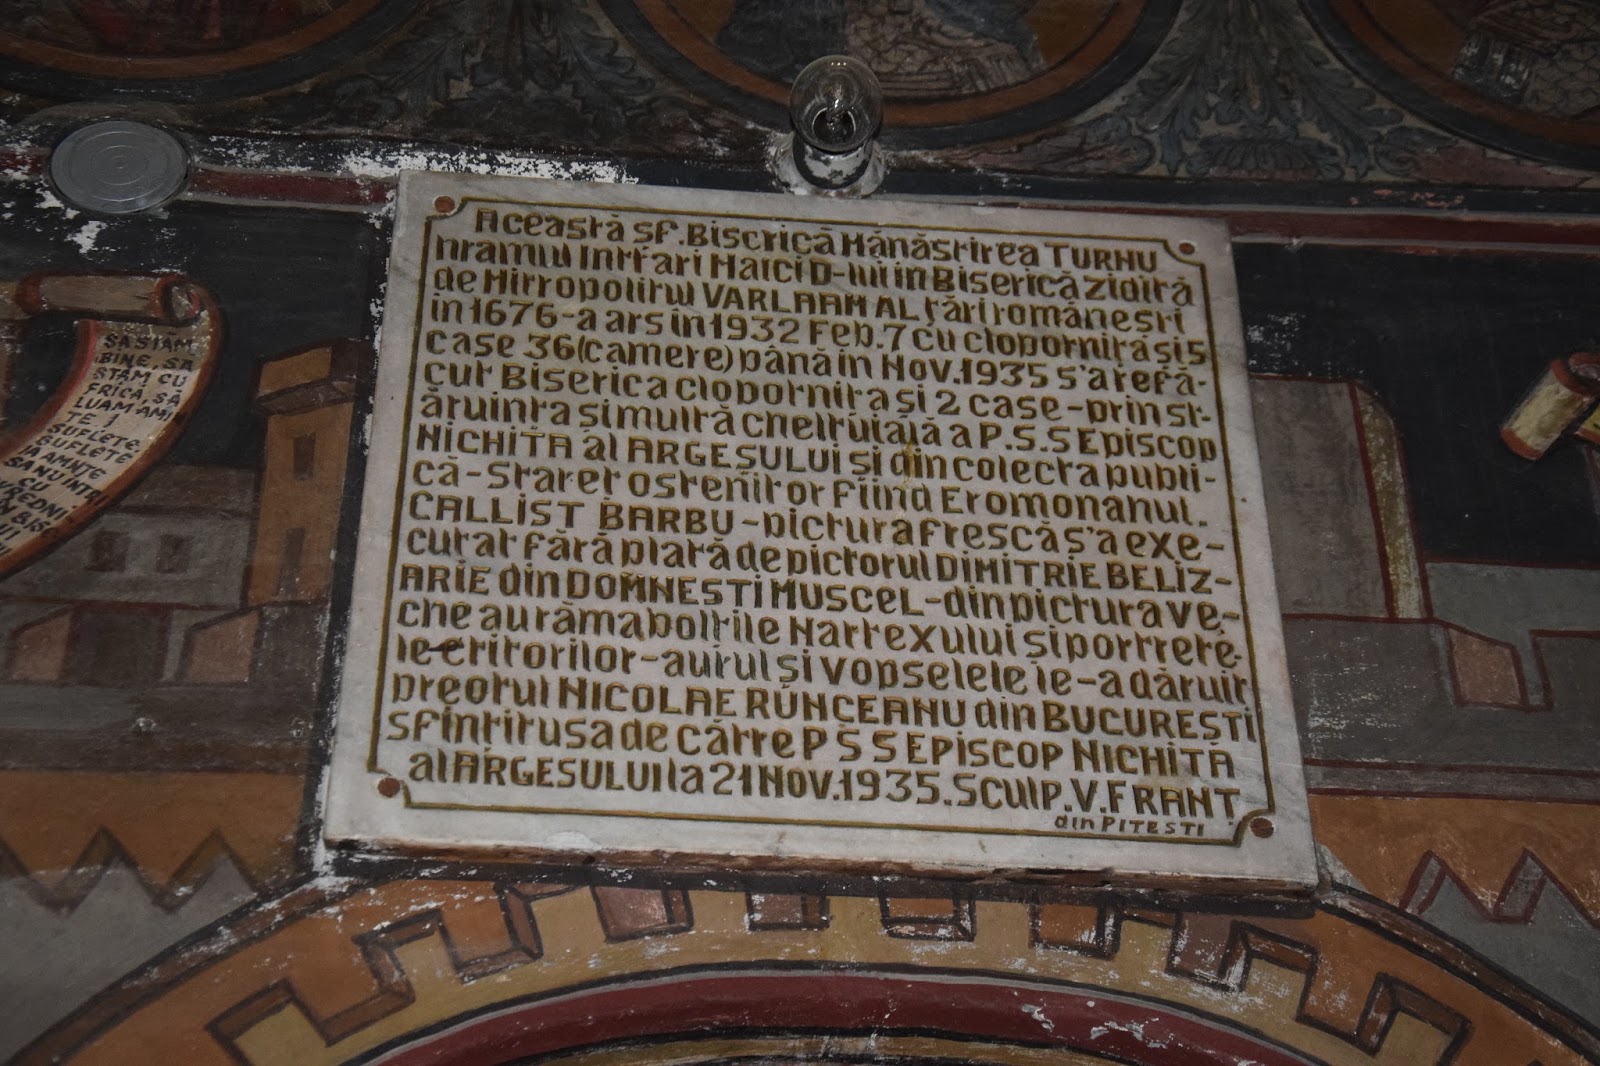 Această sf. Biserică Mănăstirea TURNU
hramul Intrări Maici D-lui în Biserică zidită
de Mitropolitul VARLAAM AL țări românești
in 1676-a ars in 1932 Feb. 7 cu clopotnița și 5
case 36 (camere) până in Nov. 1935 s'a refă-
cut Biserica clopotnița și 2 case-prin st-
ăruința și multă cheltuială a P.S.S Episcop
NICHITA al ARGEȘULUI și din colecta publi-
că-Stareț ostenitor fiind Eromonahul.
CALLIST BARBU-pictura frescă s'a exe-
cutat fără plată de pictorul DIMITRIE BELIZ-
ARIE din DOMNEȘTI MUSCEL-din pictura ve-
che au rămas boltile Nartexului și portrete-
le ctitorilor-aurul și vopselele le-a dăruit
preotul NICOLAE RUNCEANU din BUCUREȘTI
sfințitusa de către P S S EPISCOP NICHITA
al ARGEȘULUI la 21 NOV. 1935. SCULP. V. FRANȚ
din PITEȘTI
SĂ STĂM
BINE, SĂ
STĂM CU
FRICĂ, SĂ
LUĂM AMI
TE !
SUFLETE